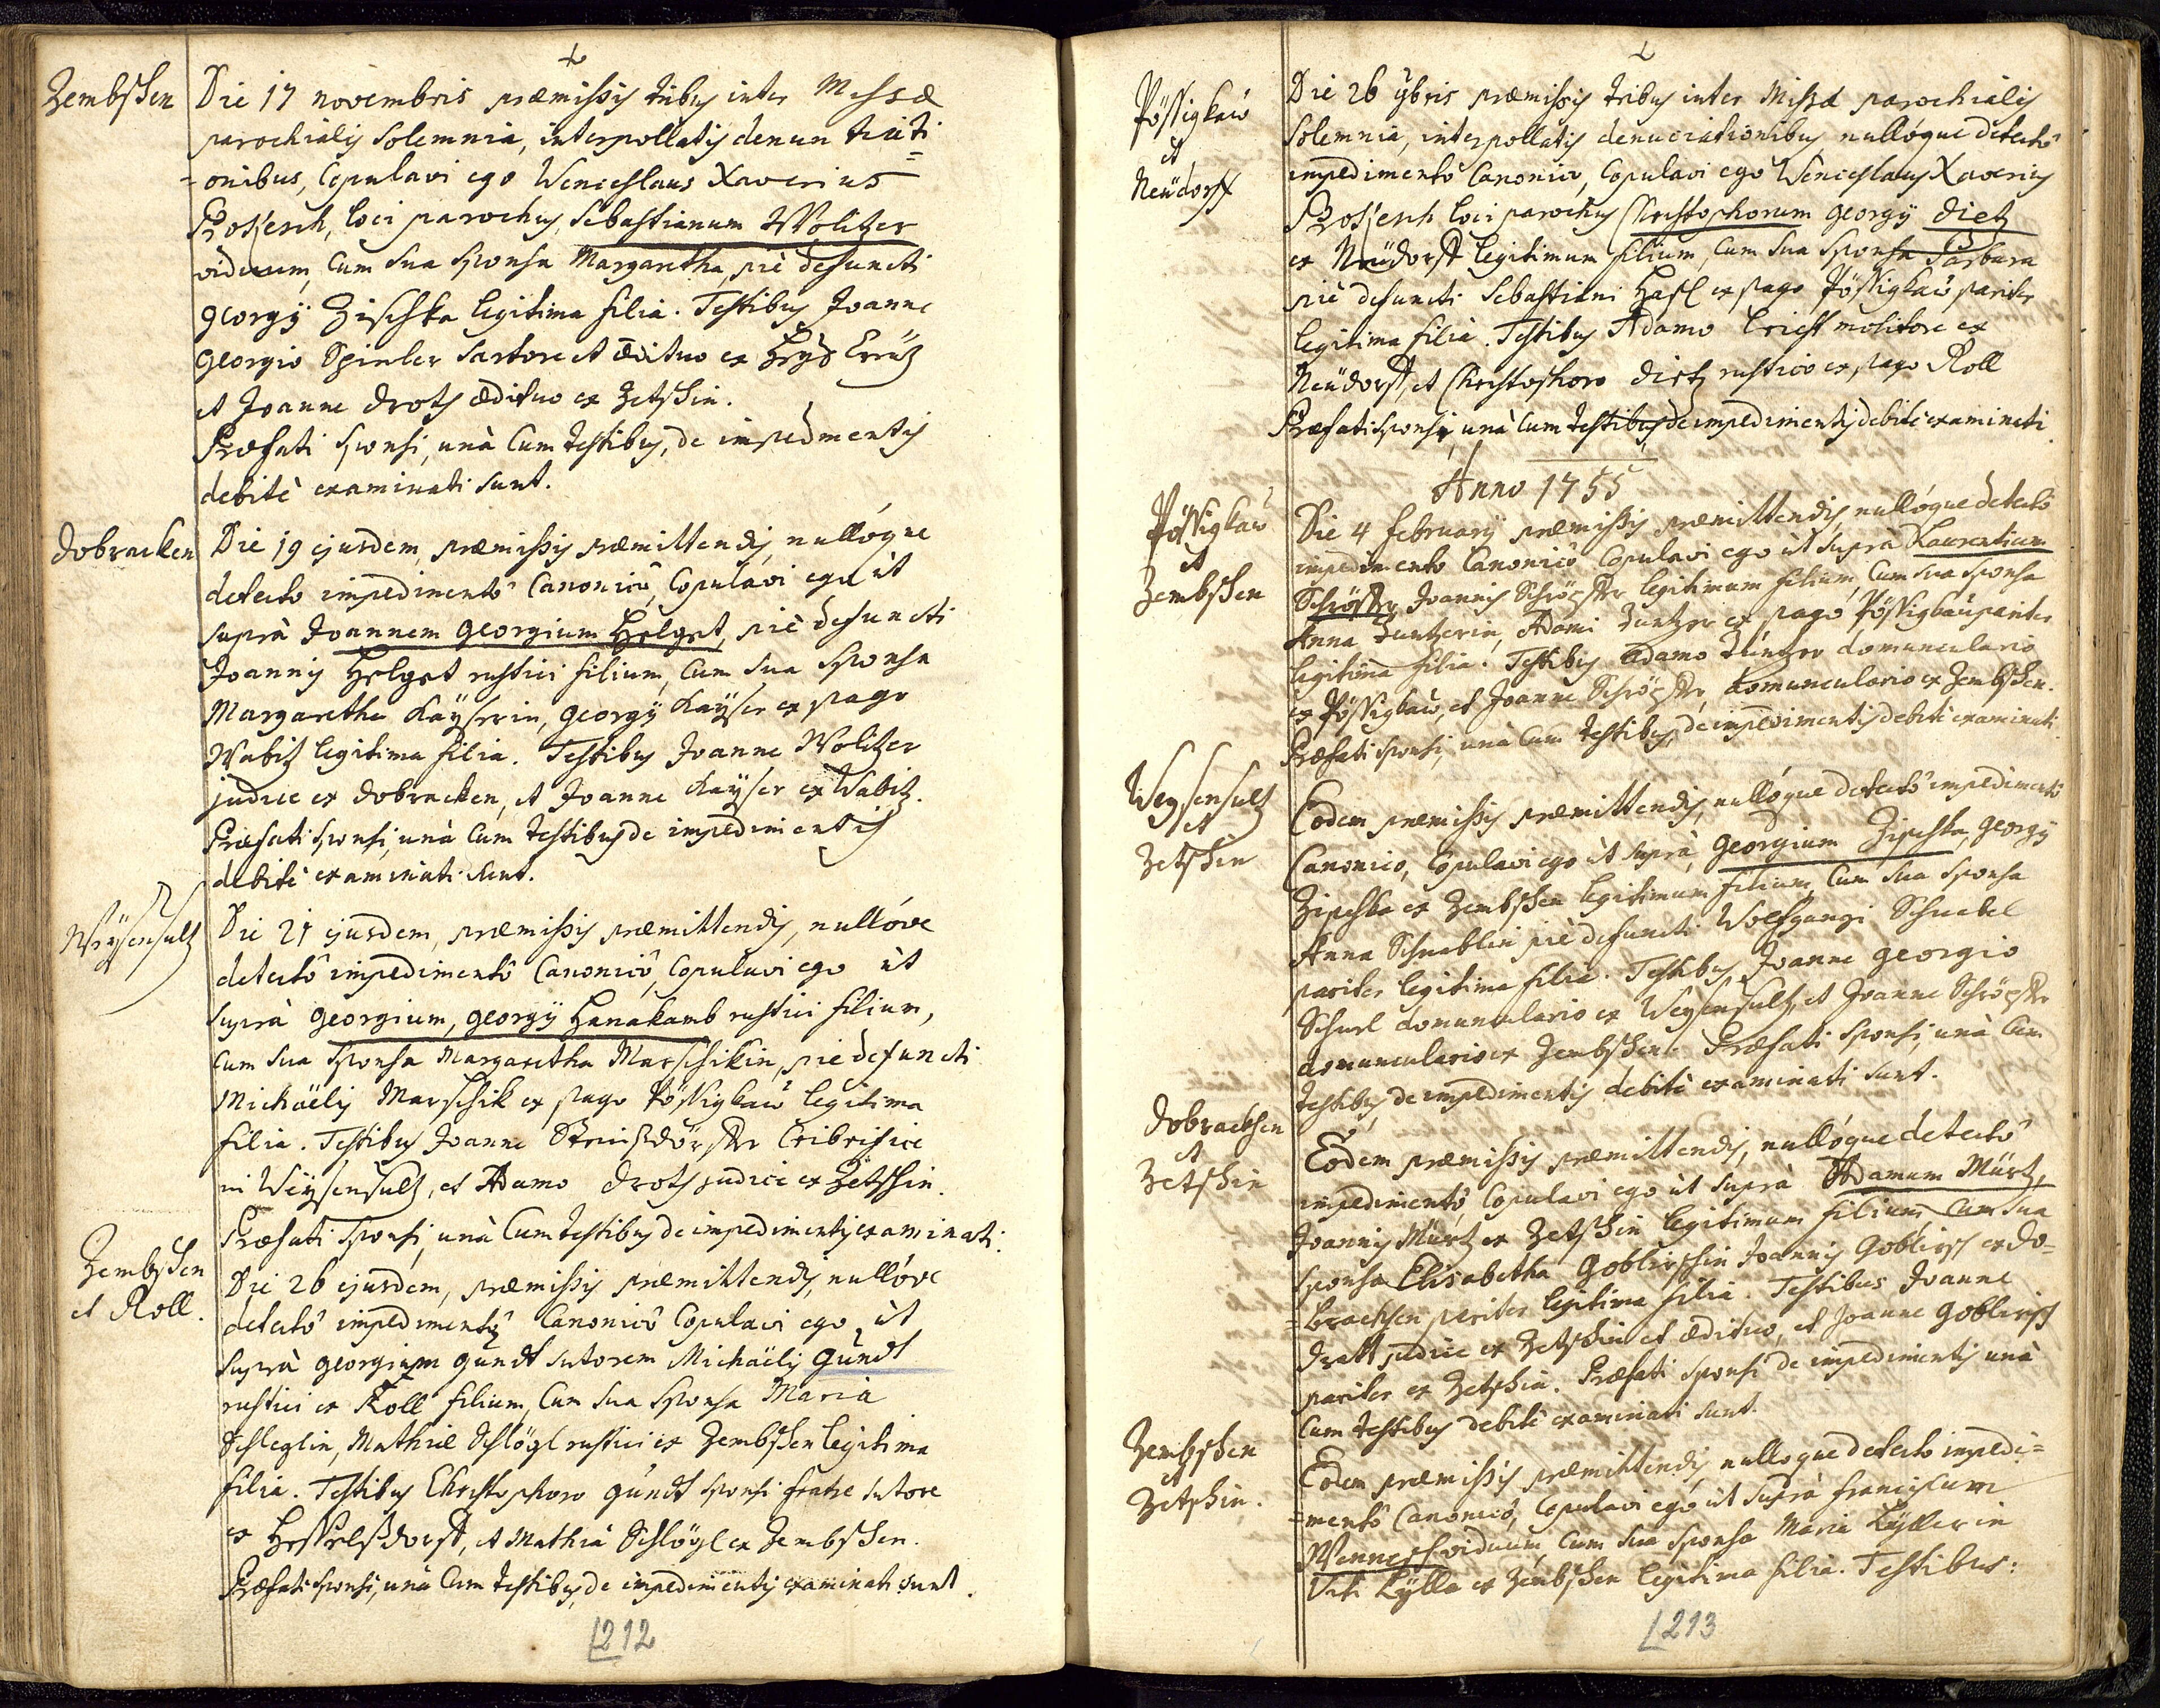 Zembschen
Die 17 novembris præmißis tribus inter Missæ
parochialis Solemnia, interpollatis denun tiati
=onibus, Copulavi ego Wenceslaus Xaverius
Prosjesch, loci parochus, Sebastianum Wolitzer
viduum, Cum sua Sponsa Margaretha, piè defuncti
georgÿ Zischka legitima filia. Testibus Joanne
georgio Spinler Sartore et ædituo ex
et Joanne Drots ædituo ex Zetschin.
Præfati Sponsi, unà Cum testibus, de impedmentis
debitè examinati sunt.
Dobracken
Die 19 ejusdem, præmißis præmittendis, nullóque
detecto impedimentô Canonicô, Copulavi ego ùt
suprà Joannem georgium Helget, piè defuncti
Joannis Helget rustici filium, Cum sua Sponsa
Margaretha Kaÿserin, georgÿ Kaÿser ex pago
Wabitz legitima filia. Testibus Joanne Wolitzer
judice ex Dobracken, et Joanne Kaÿser ex Wabitz.
Præfati Sponsi, unà Cum testibus de impedimentis
debitè examinati sunt.
Weÿsensultz
Die 21 ejusdem, præmißis præmittendis, nullóve
detectô impedimentô Canonicô, Copulavi ego ùt
suprà georgium, georgÿ Hanakamb rustici filium,
Cum sua Sponsa Margaretha Marschikin, pie defuncti
Michaëlis Marschik ex pago Pössigkaŭ legitima
filia. Testibus Joanne Steinßdörffer Cribrifice
in Weÿsensultz, et Adamo Drots judice ex Zetschin.
Præfati Sponsi, unà Cum testibus de impedimentis examinati.
Zembschen
et Roll.
Die 26 ejusdem, præmißis præmittendis, nullóve
detectô impedimentô Canonicô Copulavi ego ùt
suprà georgium gündt sutorem Michaëlis gündt
rustici ex Roll filium, Cum sua Sponsa Maria
Schleglin, Mathiæ Schlögl rustici ex Zembschen legitima
filia. Testibus Christophoro gündt sponsi fratre sutore
ex Hesselßdorff, et Mathia Schlögl ex Zembschen.
Præfati Sponsi, unà Cum testibus, de impedimentis examinati sunt.
212
Pössigkaŭ
et
Neüdorff
Die 26 9bris præmißis tribus inter Mißæ parochialis
Solemnia, interpollatis denuciationibus, nullóque detectô
impedimentô Canonico, Copulavi egô Wenceslaus Xaverius
Prosjesch loci parochus Christophorum georgÿ Dietz
ex Neüdorff legitimum filium, Cum sua Sponsa Barbara
piè defuncti Sebastiani Hasl ex pago Pössigkaŭ pariter
legitima filia. Testibus Adamo molitore ex
Neüdorff, et Christophoro Dietz rustico ex pago Roll
Præfati Sponsi, unà Cum testibus de impedimentis debitè examinati
Anno 1755
Pössigkaŭ
et
Zembschen
Die 4 februarÿ præmißis præmittendis, nullóque detectô
impedimento Canonicô Copulavi ego ùt suprà Laurentium
Schröpffer Joannis Schröpffer legitimum filium, Cum sua Sponsa
Anna Duntzerin, Adami Duntzer ex pago Pössigkaŭ pariter
legitima filia. Testibus Adamo Düntzer domunculario
ex Pössigkaŭ, et Joanne Schröpffer, domunculario ex Zembschen.
Præfati Sponsi, unà Cum testibus, de impedimentis debitè examinati
Weysensultz
et
Zetschin
Eodem præmißis præmittendis, nullóque detectô impedimentô
Canonico, Copulavi ego ùt suprà, georgium Zischka, georgÿ
Zischka ex Zembschen legitimum filium, Cum sua Sponsa
Anna Schnablin piè defuncti Wolfgangi Schnabel
pariter legitima filia. Testibus, Joanne georgio
domunculario ex Weysensultz, et Joanne Schröpffer
domunculario ex Zembschen. Præfati Sponsi, unà Cum
testibus, de impedimentis debitè examinati sunt.
Dobracksen
et
Zetschin
Eodem præmißis præmittendis, nullóque detectô
impedimentô, Copulavi ego ùt suprà Adamum Mürtz,
Joannis Mürtz ex Zetschin legitimum filium, Cum sua
Sponsa Elisabetha Goblirschin Joannis Goblirsch ex Do=
=bracksen pariter legitima filia. Testibus Joanne
judice ex Zetschin et ædituo, et Joanne Goblirsch
pariter ex Zetschin. Præfati Sponsi de impedimentis unà
Cum testibus debitè examinati sunt.
Zembschen
et
Zetschin.
Eodem præmißis præmittendis, nulloque detecto impedi=
=mentô Canonicô, Copulavi egô ùt suprà franciscum
Wennesch viduum, Cum sua Sponsa Maria Lÿllerin
Viti Lÿlla ex Zembschen legitima filia. Testibus:
213